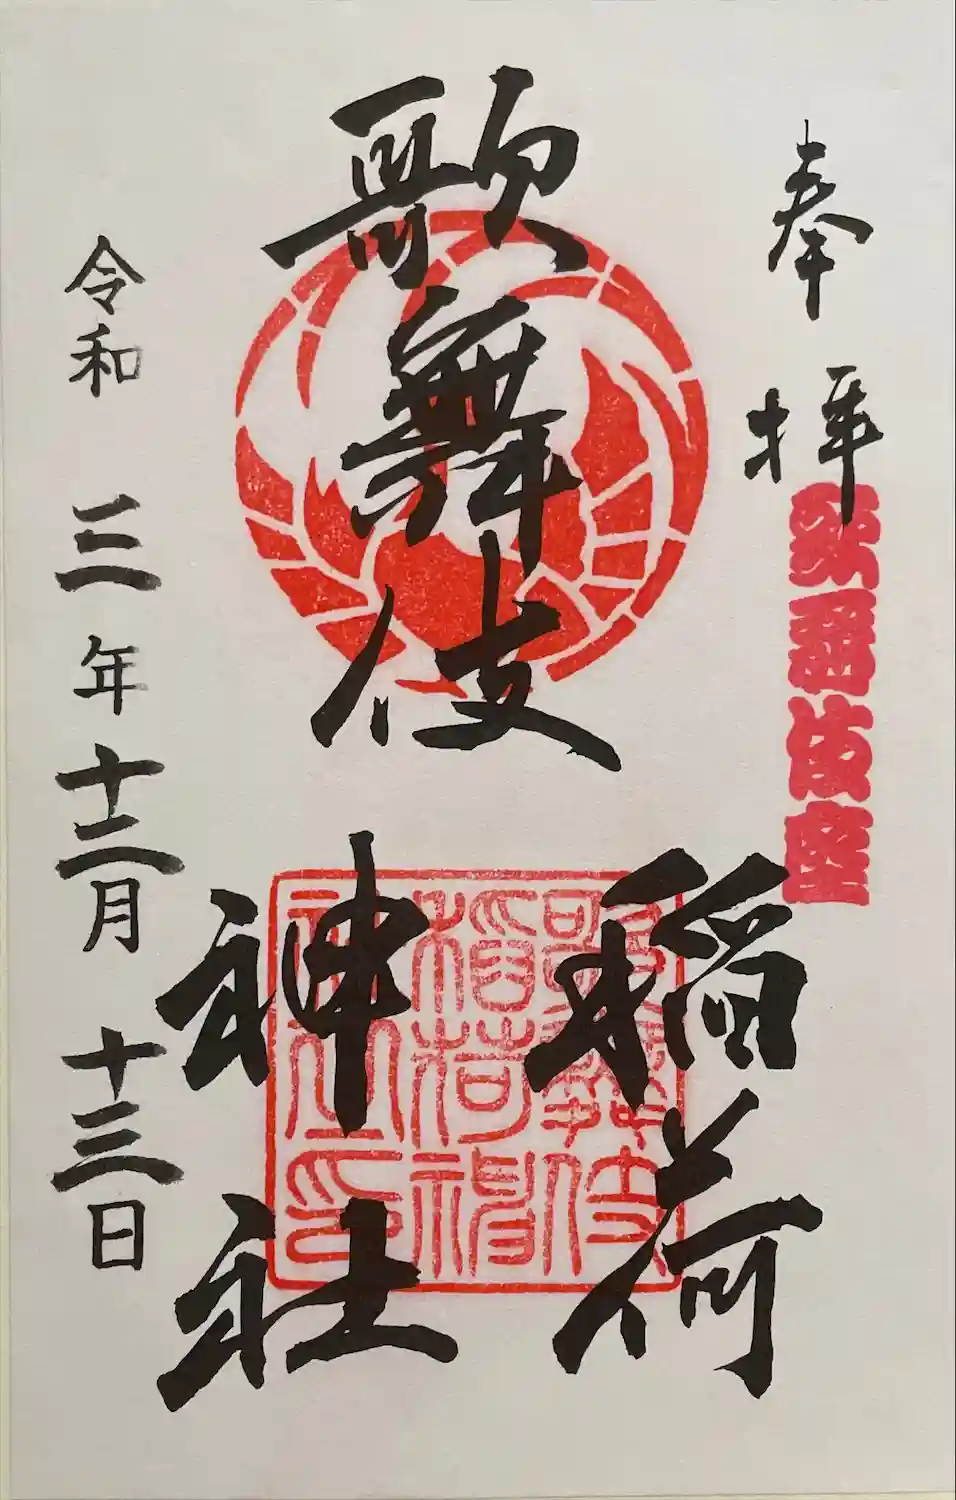 奉拝
歌舞伎座
歌舞伎
稲荷
神社
歌舞伎
稲荷神
社之印
令和三年十二月十三日